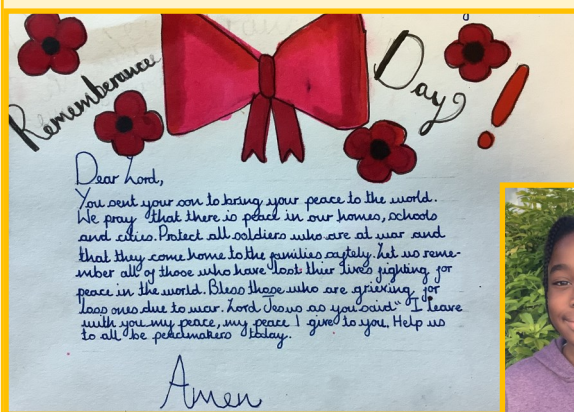 Rememberance Day!
Dear Lord,
You sent your son to bring your peace to the world.
We pray that there is peace in our homes, schools
and cities. Protect all soldiers who are at war and
that they come home to the families safely. Let us reme-
mber all of those who have lost thier lives fighting for
peace in the world. Bless those who are grieving for
loss ones due to war. Lord Jesus as you said " I leave
with you my peace, my peace I give to you. Help us
to all be peacmakers today.
Amen